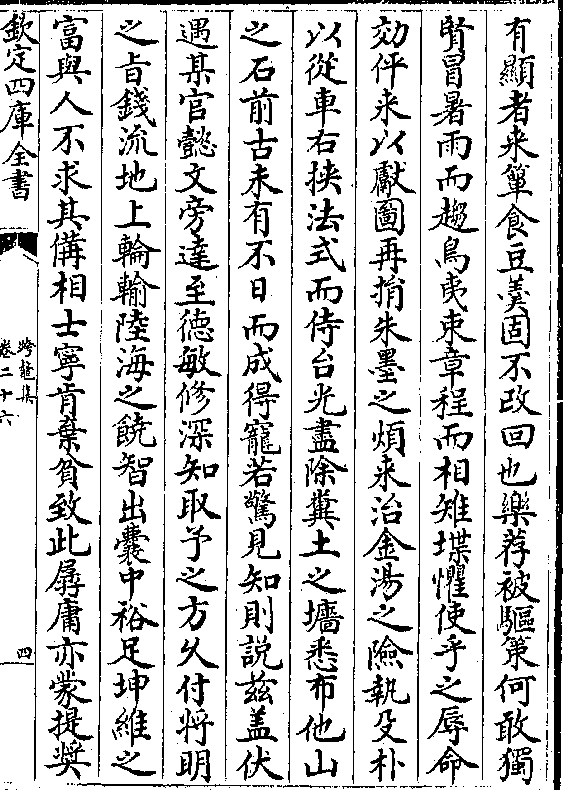 有顯者来簞食豆羮固不改回也樂荐被驅䇿何敢獨
賢冒暑雨而趨鳥夷朿章程而相雉堞懼使乎之辱命
効伻来以獻圖再捐朱墨之煩来治金湯之險執殳朴
以從車右挟法式而侍台光盡除糞土之墻悉布他山
之石前古未有不日而成得寵若驚見知則説兹盖伏
遇某官懿文旁達至徳敏修深知取予之方久付將明
之㫖錢流地上輪輸陸海之饒智出囊中裕足坤維之
富與人不求其備相士寧肯棄貧致此孱庸亦蒙提奨
欽定四庫全書
跨鼇集
卷二十六
四